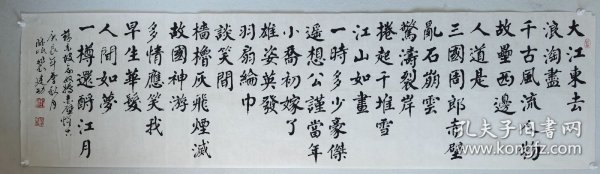 大江東去
浪淘盡
千古風流人物
故壘西邊
人道是
三國周郎赤壁
亂石崩雲
驚濤裂岸
捲起千堆雪
江山如畫
一時多少豪傑
遥想公謹當年
小喬初嫁了
雄姿英發
羽扇綸巾
談笑間
檣櫓灰飛煙滅
故國神游
多情應笑我
早生華髮
人間如夢
一樽還酹江月
孔夫子旧书网